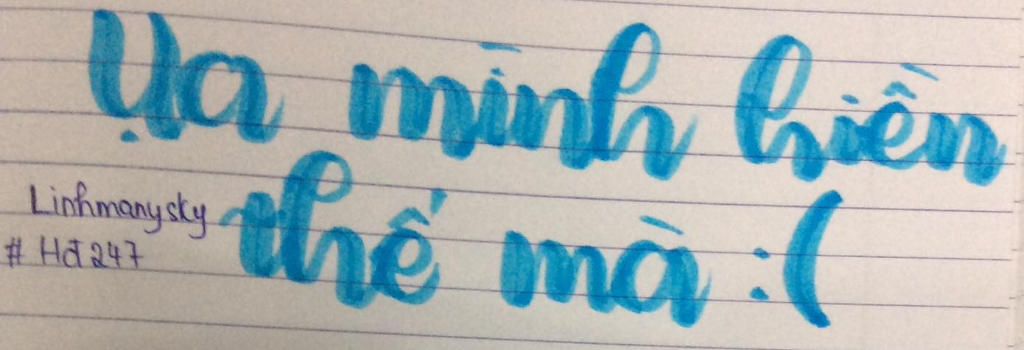 Ụa mình hiền
thế mà :(
Linhmanysky
# Hđ247